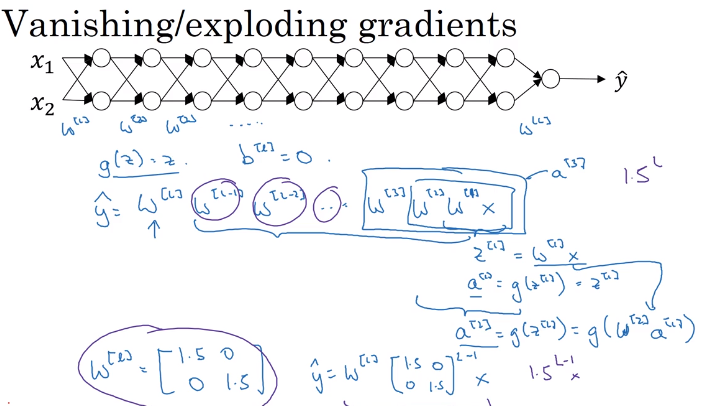 Vanishing/exploding gradients
x₁
x₂
ŷ
w^[1] w^[2] w^[3] ..... w^[L]
g(z) = z. b^[l] = 0.
ŷ = w^[L] w^[L-1] w^[L-2] ... w^[3] w^[2] w^[1] x
a^[3]
1.5^L
z^[1] = w^[1] x
a^[1] = g(z^[1]) = z^[1]
a^[2] = g(z^[2]) = g(w^[2] a^[1])
w^[l] = [1.5 0
0 1.5]
ŷ = w^[L] [1.5 0
0 1.5]^L-1 x
1.5^L-1 x